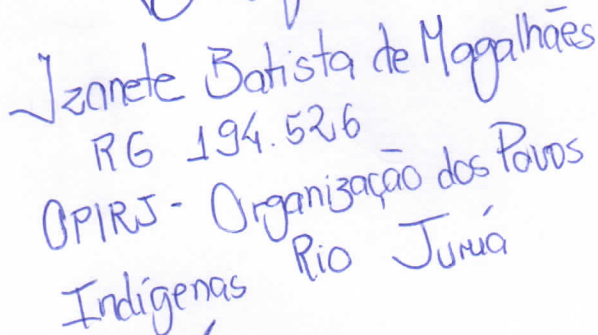 Izanete Batista de Magalhães
RG 194.526
OPIRJ - Organização dos Povos
Indígenas Rio Juruá